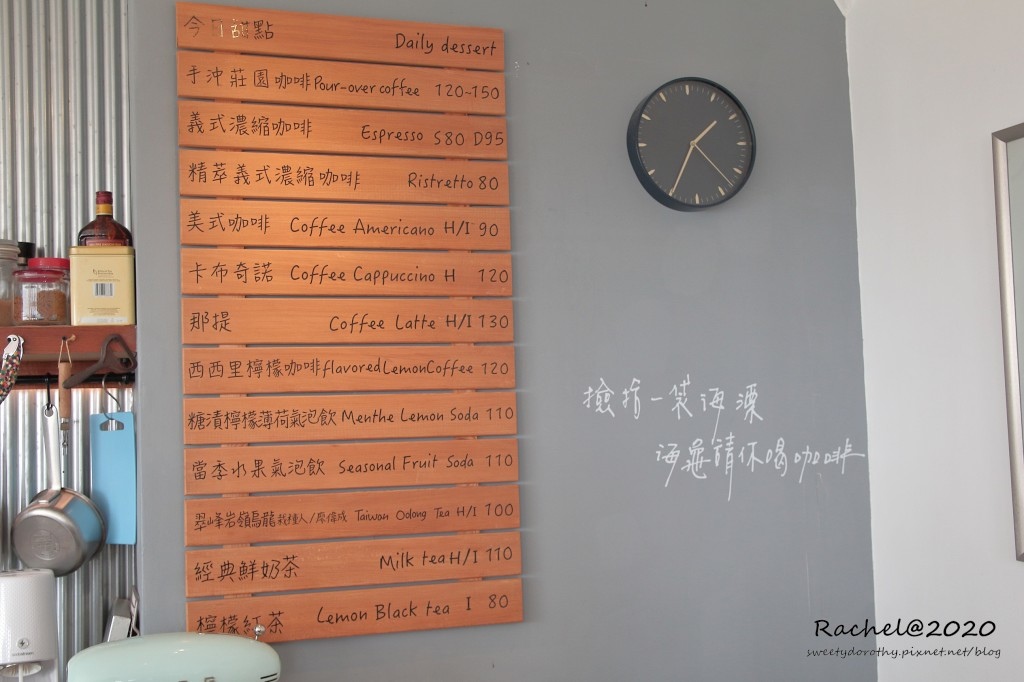 今日甜點 Daily dessert
手沖莊園咖啡 Pour-over coffee 120~150
義式濃縮咖啡 Espresso S80 D95
精萃義式濃縮咖啡 Ristretto 80
美式咖啡 Coffee Americano H/I 90
卡布奇諾 Coffee Cappuccino H 120
那提 Coffee Latte H/I 130
西西里檸檬咖啡 flavored Lemon Coffee 120
糖漬檸檬薄荷氣泡飲 Menthe Lemon Soda 110
當季水果氣泡飲 Seasonal Fruit Soda 110
翠峰岩嶺烏龍 栽種人/廖偉成 Taiwan Oolong Tea H/I 100
經典鮮奶茶 Milk tea H/I 110
檸檬紅茶 Lemon Black tea I 80
撿拾一袋海漂
海廢請你喝咖啡
Rachel@2020
sweetydorothy.pixnet.net/blog